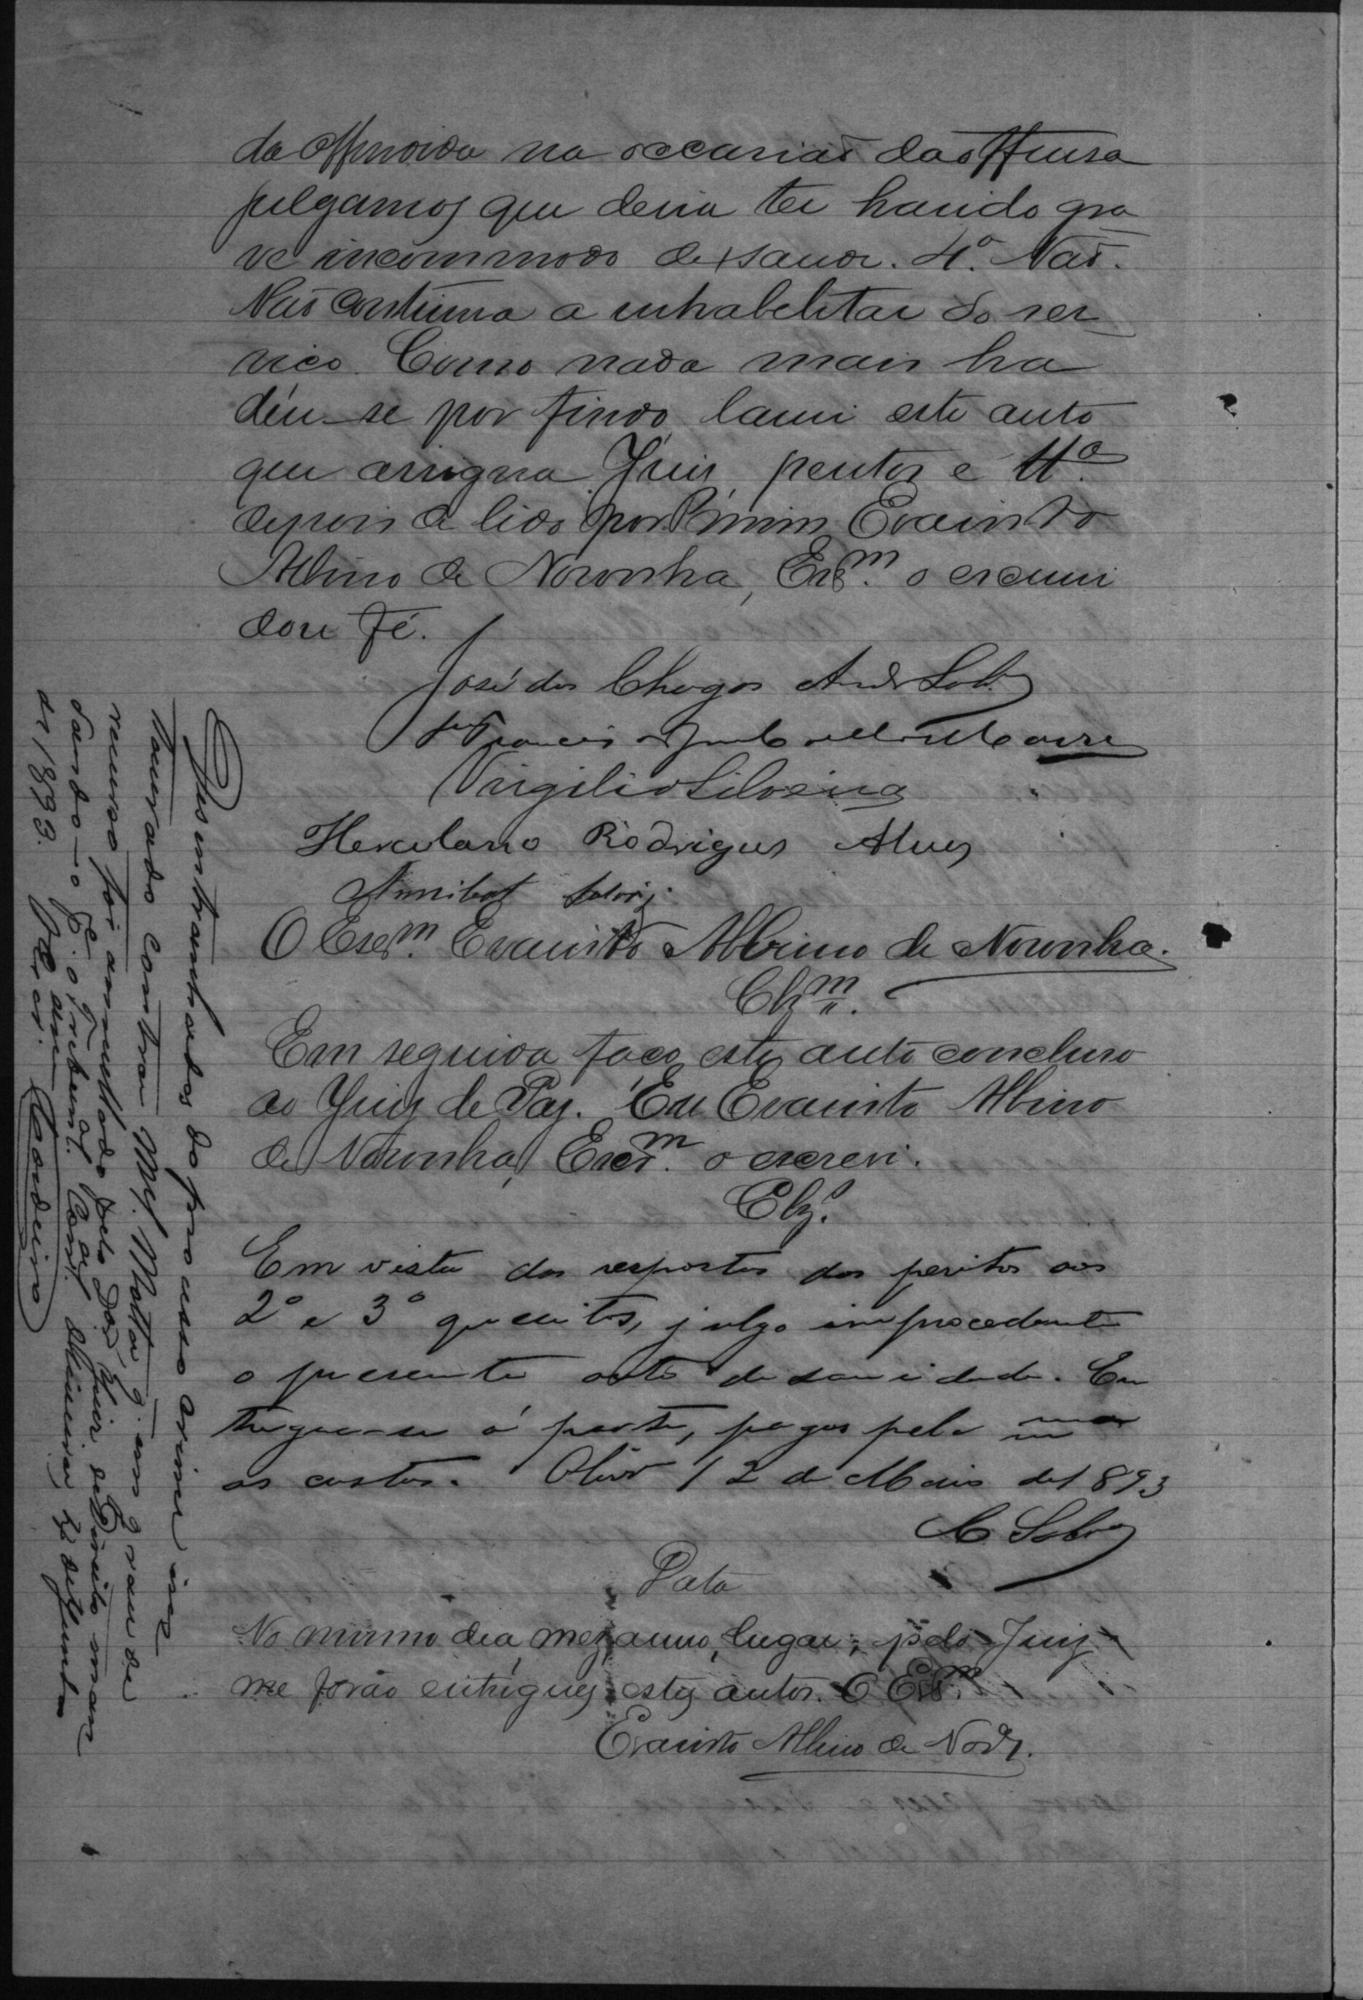 da offendida na occasião da offensa
julgamos que devia ter havido gra
ve incommodo de saude. 4º. Não.
Não continua a inhabelitar do ser
viço. Como nada mais ha
déu-se por findo lavrei este auto
que assigna Juis, peritos e ttª
depois de lido por mim Evaristo
Albino de Noronha, Escm. o escrevi
dou fé.
José das Chagas Andr Sobº
Virgilio Silveira
Herculano Rodrigues Alves
Annibal
O Escm. Evaristo Albino de Noronha.
Clzm.
Em seguida faço estes auto concluso
ao Juiz de Paz. Eu Evaristo Albino
de Noronha, Escm. o escrevi.
Clz.
Em vista das respostas dos peritos aos
2º e 3º quesitos, julgo improcedente
o presente auto de sanidade. En
tregue-se á parte, pagas pela mesma
as custas. 12 de Maio de 1893
C Sobrº
Data
No mesmo dia, mez, anno, lugar, pelo Juiz
me forão entregues estes autos. O Escm.
Evaristo Albino de Norª.
Desentranhados do processo crime ins
taurado contra Mel. Motta, q. em grau de
recurso foi annullado pelo Dor. Juiz de Direito man
dando-o p. o tribunal Corr.
de 1893. O Escr. Cordeiro